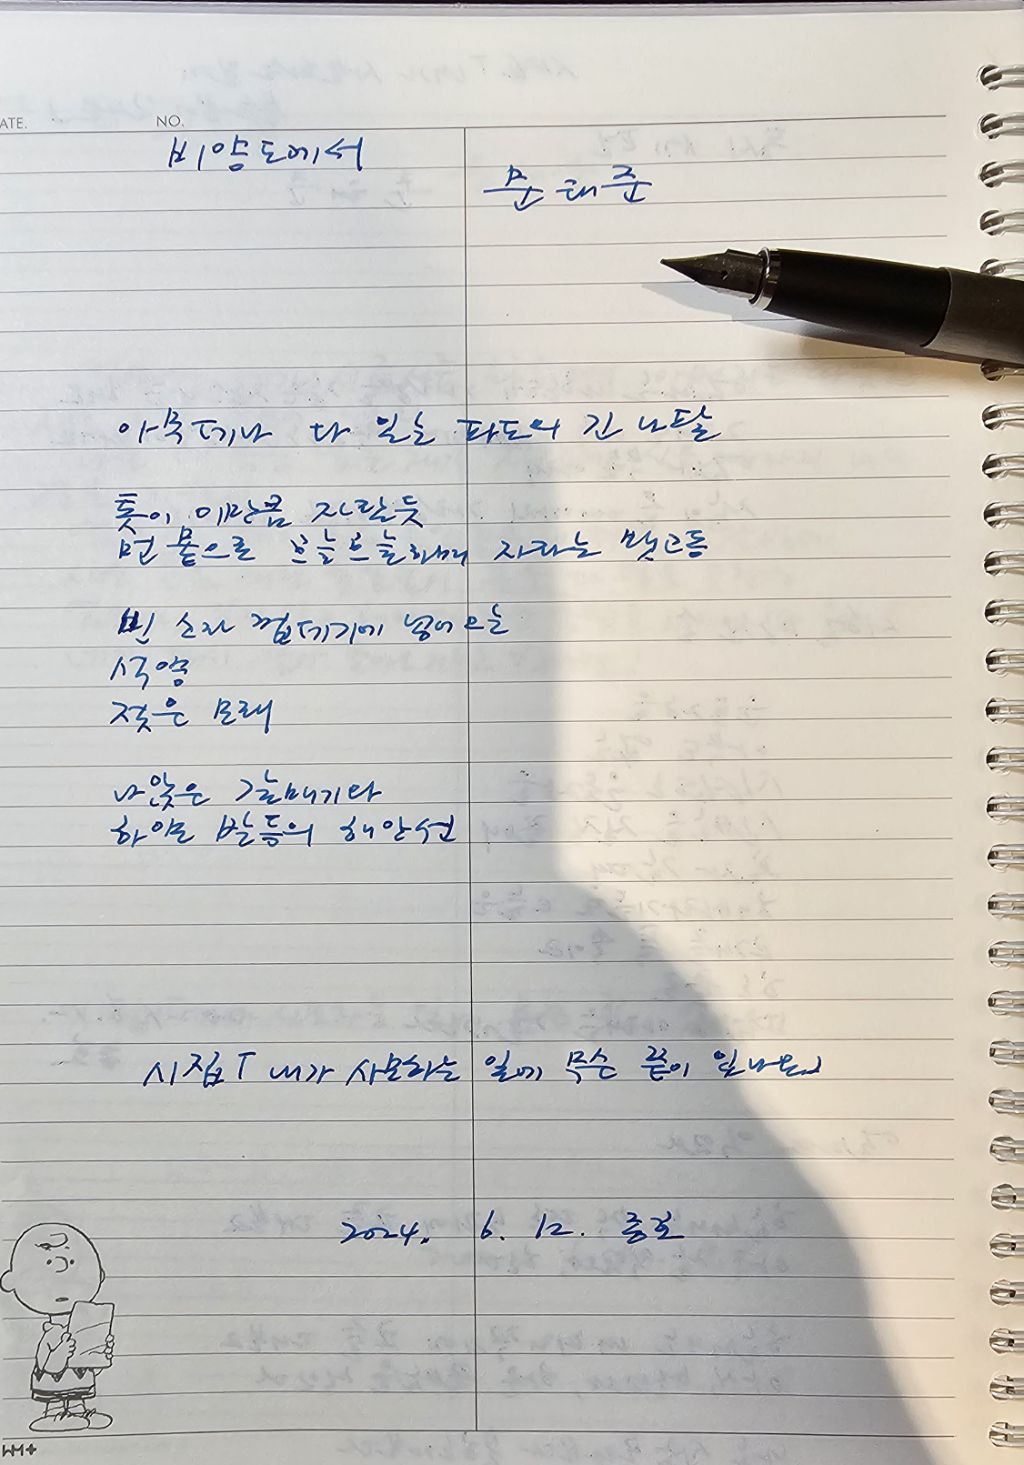 ATE.
NO.
비양도에서
문태준
아무데나 다 일는 파도의 긴 나달
톳이 이만큼 자랄듯
먼 뭍으로 흐늘흐늘하며 자라는 맷고둥
빈 소라 껍데기에 넣어오는
석양
젖은 모래
나앉은 갈매기와
하얀 발등의 해안선
시집「내가 사모하는 일에 무슨 끝이 있나요」
2024. 6. 12. 종호
WM+